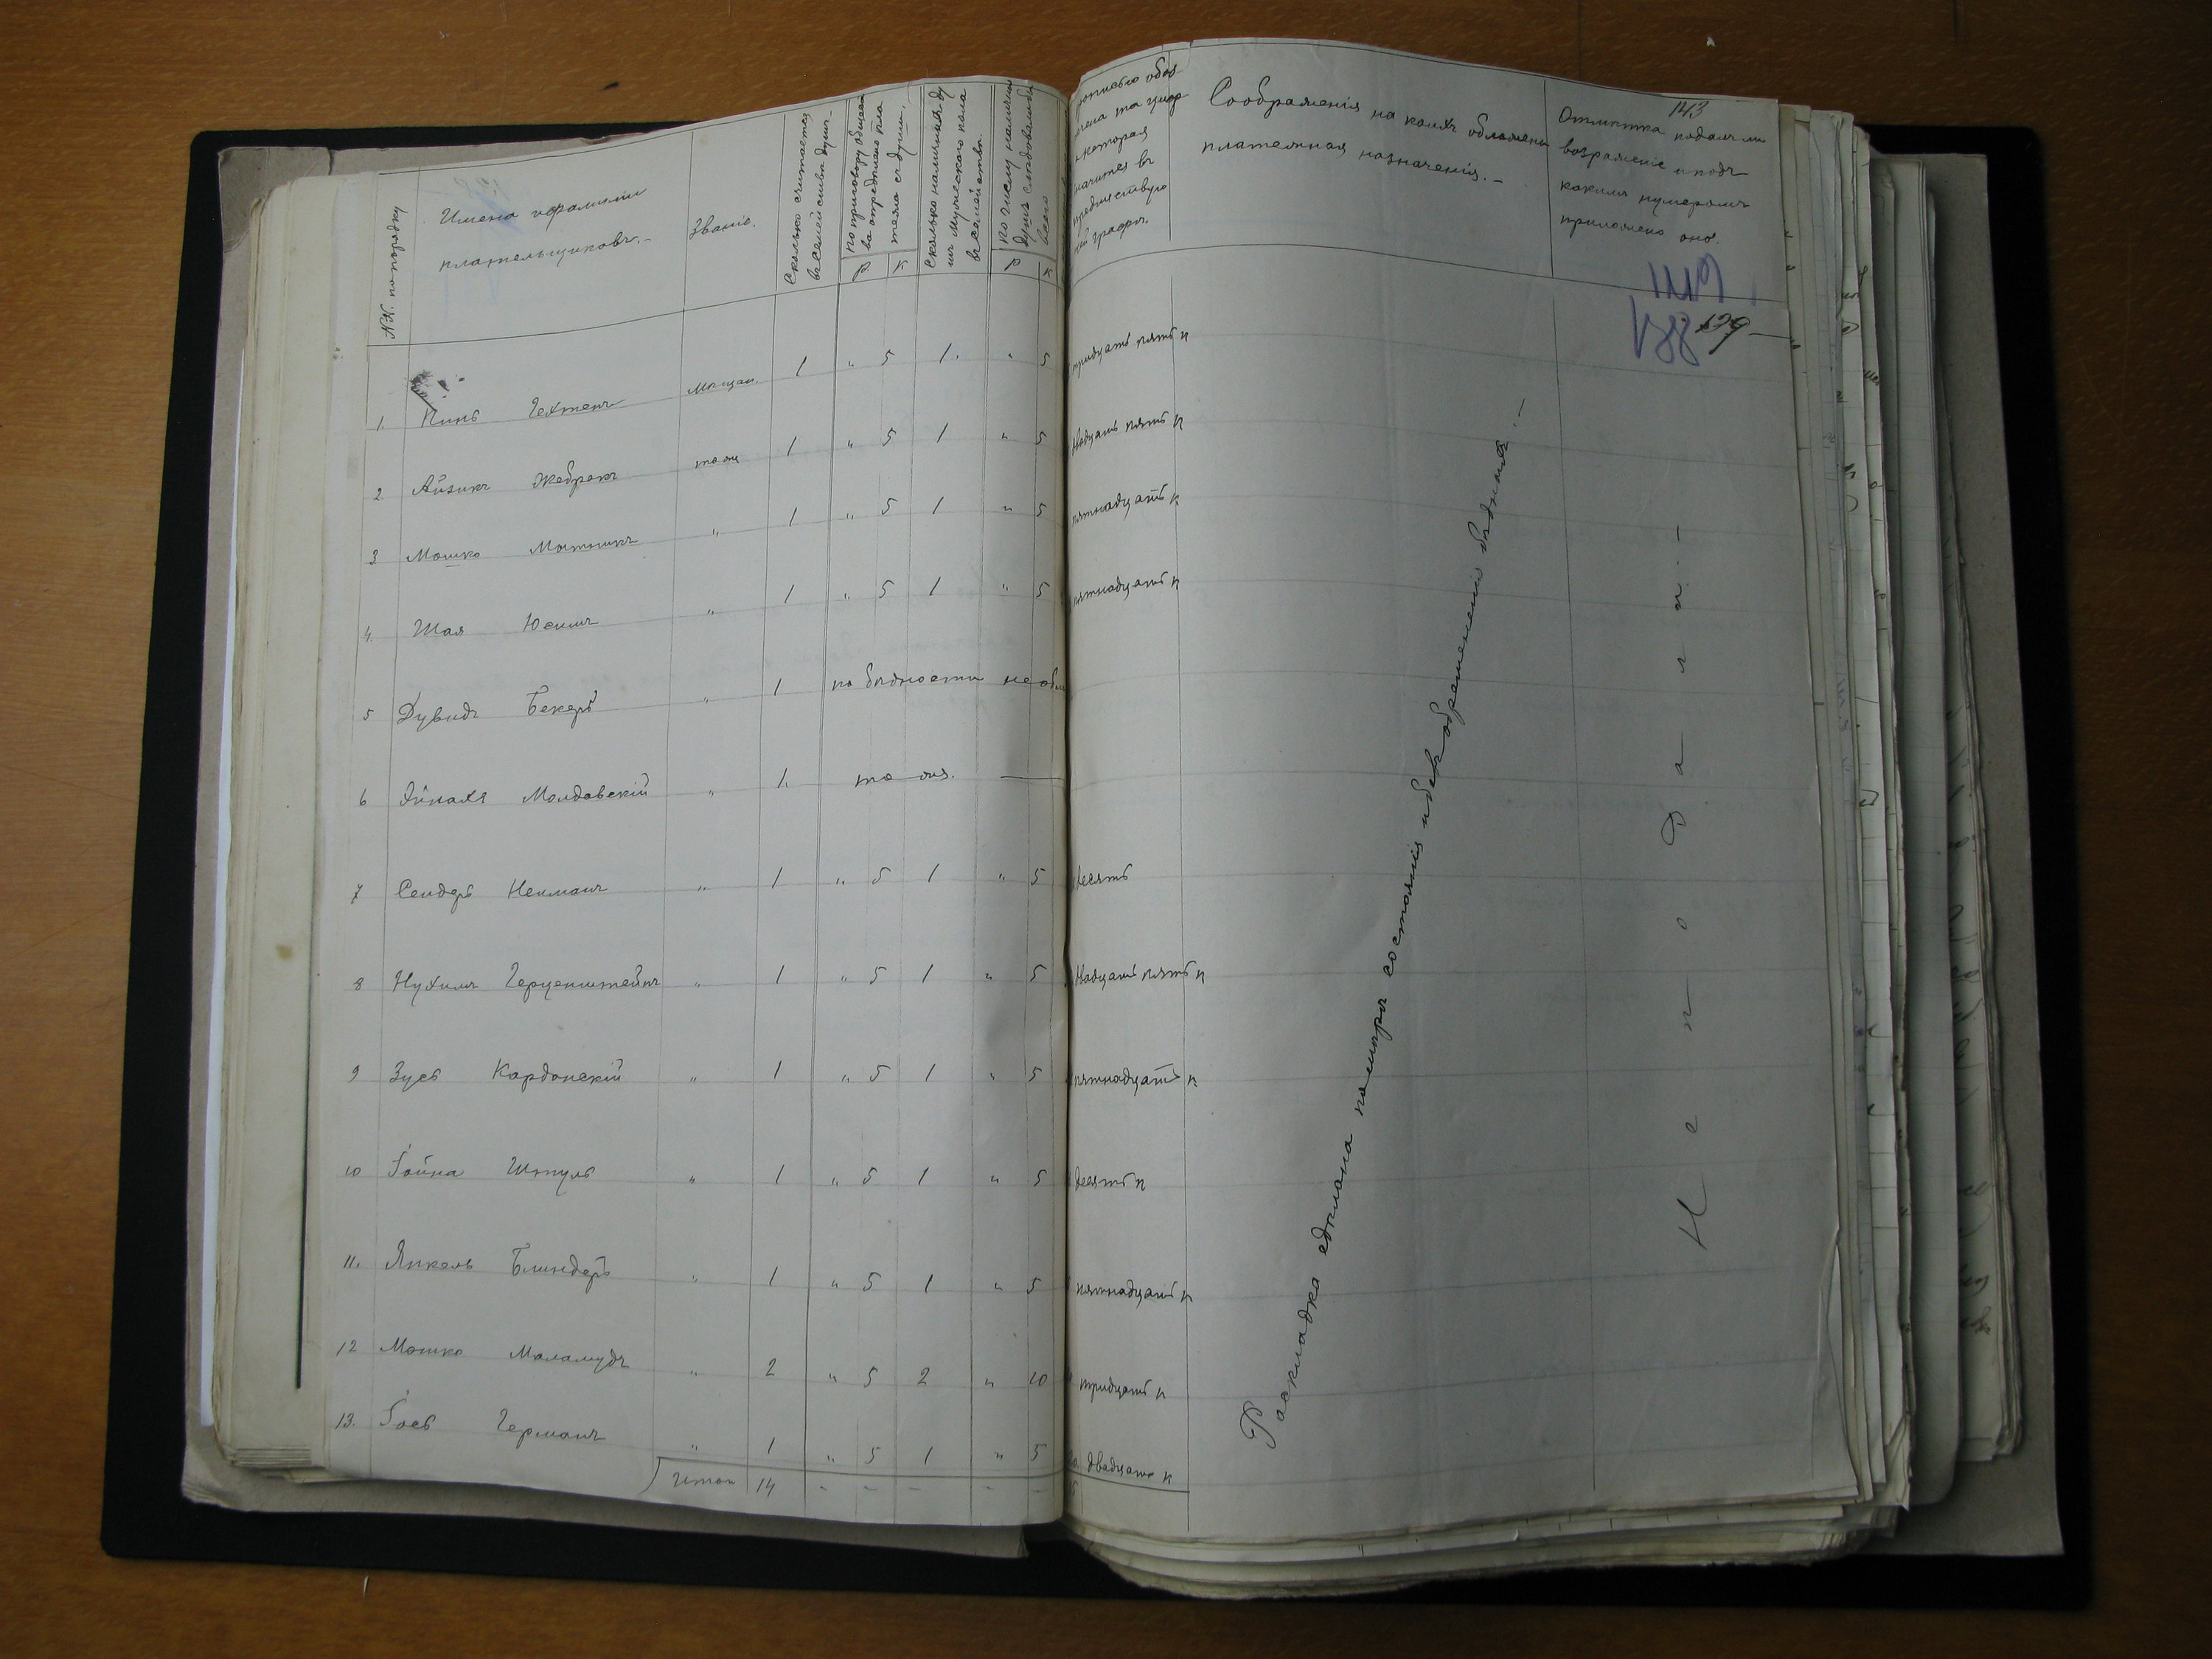 №№ по порядку
Имена и фамилiи
плательщиковъ.–
Званiе.
Сколько считается
въ семействѣ душъ.–
по приговору общест
ва опредѣлено пла
тежа съ души.
Р К
Сколько наличныхъ ду
шъ мужескаго пола
въ семействѣ.
по числу наличныхъ
душъ слѣдовало бы
всего
Р К
прописью обоз
чена та цифра
которая
значится въ
предшествую
щей графѣ.
Соображенiя на коихъ обложены
платежная назначенiя.–
143
Отмѣтка подалъ ли
возраженiе и подъ
какимъ нумеромъ
приложено оно.
139
188
1. Пинь Гехтенъ мѣщан. 1 " 5 1. " 5 тридцать пять к
2 Айзикъ Жебракъ то же 1 " 5 1 " 5 двадцать пять к
3 Мошко Мотникъ " 1 " 5 1 " 5 пятнадцать к
4. Шая Юсимъ " 1 " 5 1 " 5 пятнадцать к
5 Дувидъ Бекеръ " 1 по бѣдности не обл
6 Айнахъ Молдавскiй " 1. то же. —
7 Сендеръ Нейманъ " 1 " 5 1 " 5 десять
8 Нухимъ Герценштейнъ " 1 " 5 1 " 5 двадцать пять к
9 Зусь Кардонскiй " 1 " 5 1 " 5 пятнадцать к
10 Гойна Штуль " 1 " 5 1 " 5 десять к
11. Янкель Блиндеръ " 1 " 5 1 " 5 пятнадцать к
12 Мошко Маламудъ " 2 " 5 2 " 10 тридцать к
13. Іось Германъ " 1 " 5 1 " 5 двадцать к
Итого 14 - - - - -
Раскладка сдѣлана по мѣрѣ состоянiя и безъ обремененiя бѣдныхъ.–
Не подали.–